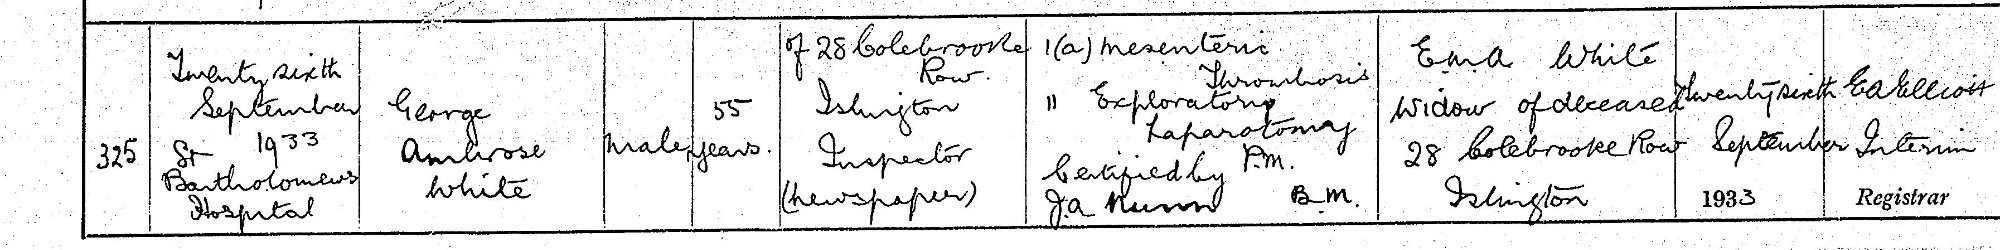 325
Twenty sixth
September
1933
St
Bartholomews
Hospital
George
Ambrose
White
Male
55
years.
of 28 Colebrooke
Row.
Islington
Inspector
(newspaper)
1(a) Mesenteric
Thrombosis
11 Exploratory
Laparotomy
P.M.
Certified by
J.A. Nunn B.M.
E.M.A White
Widow of deceased
28 Colebrooke Row
Islington
Twenty sixth
September
1933
E A Elliott
Interim
Registrar